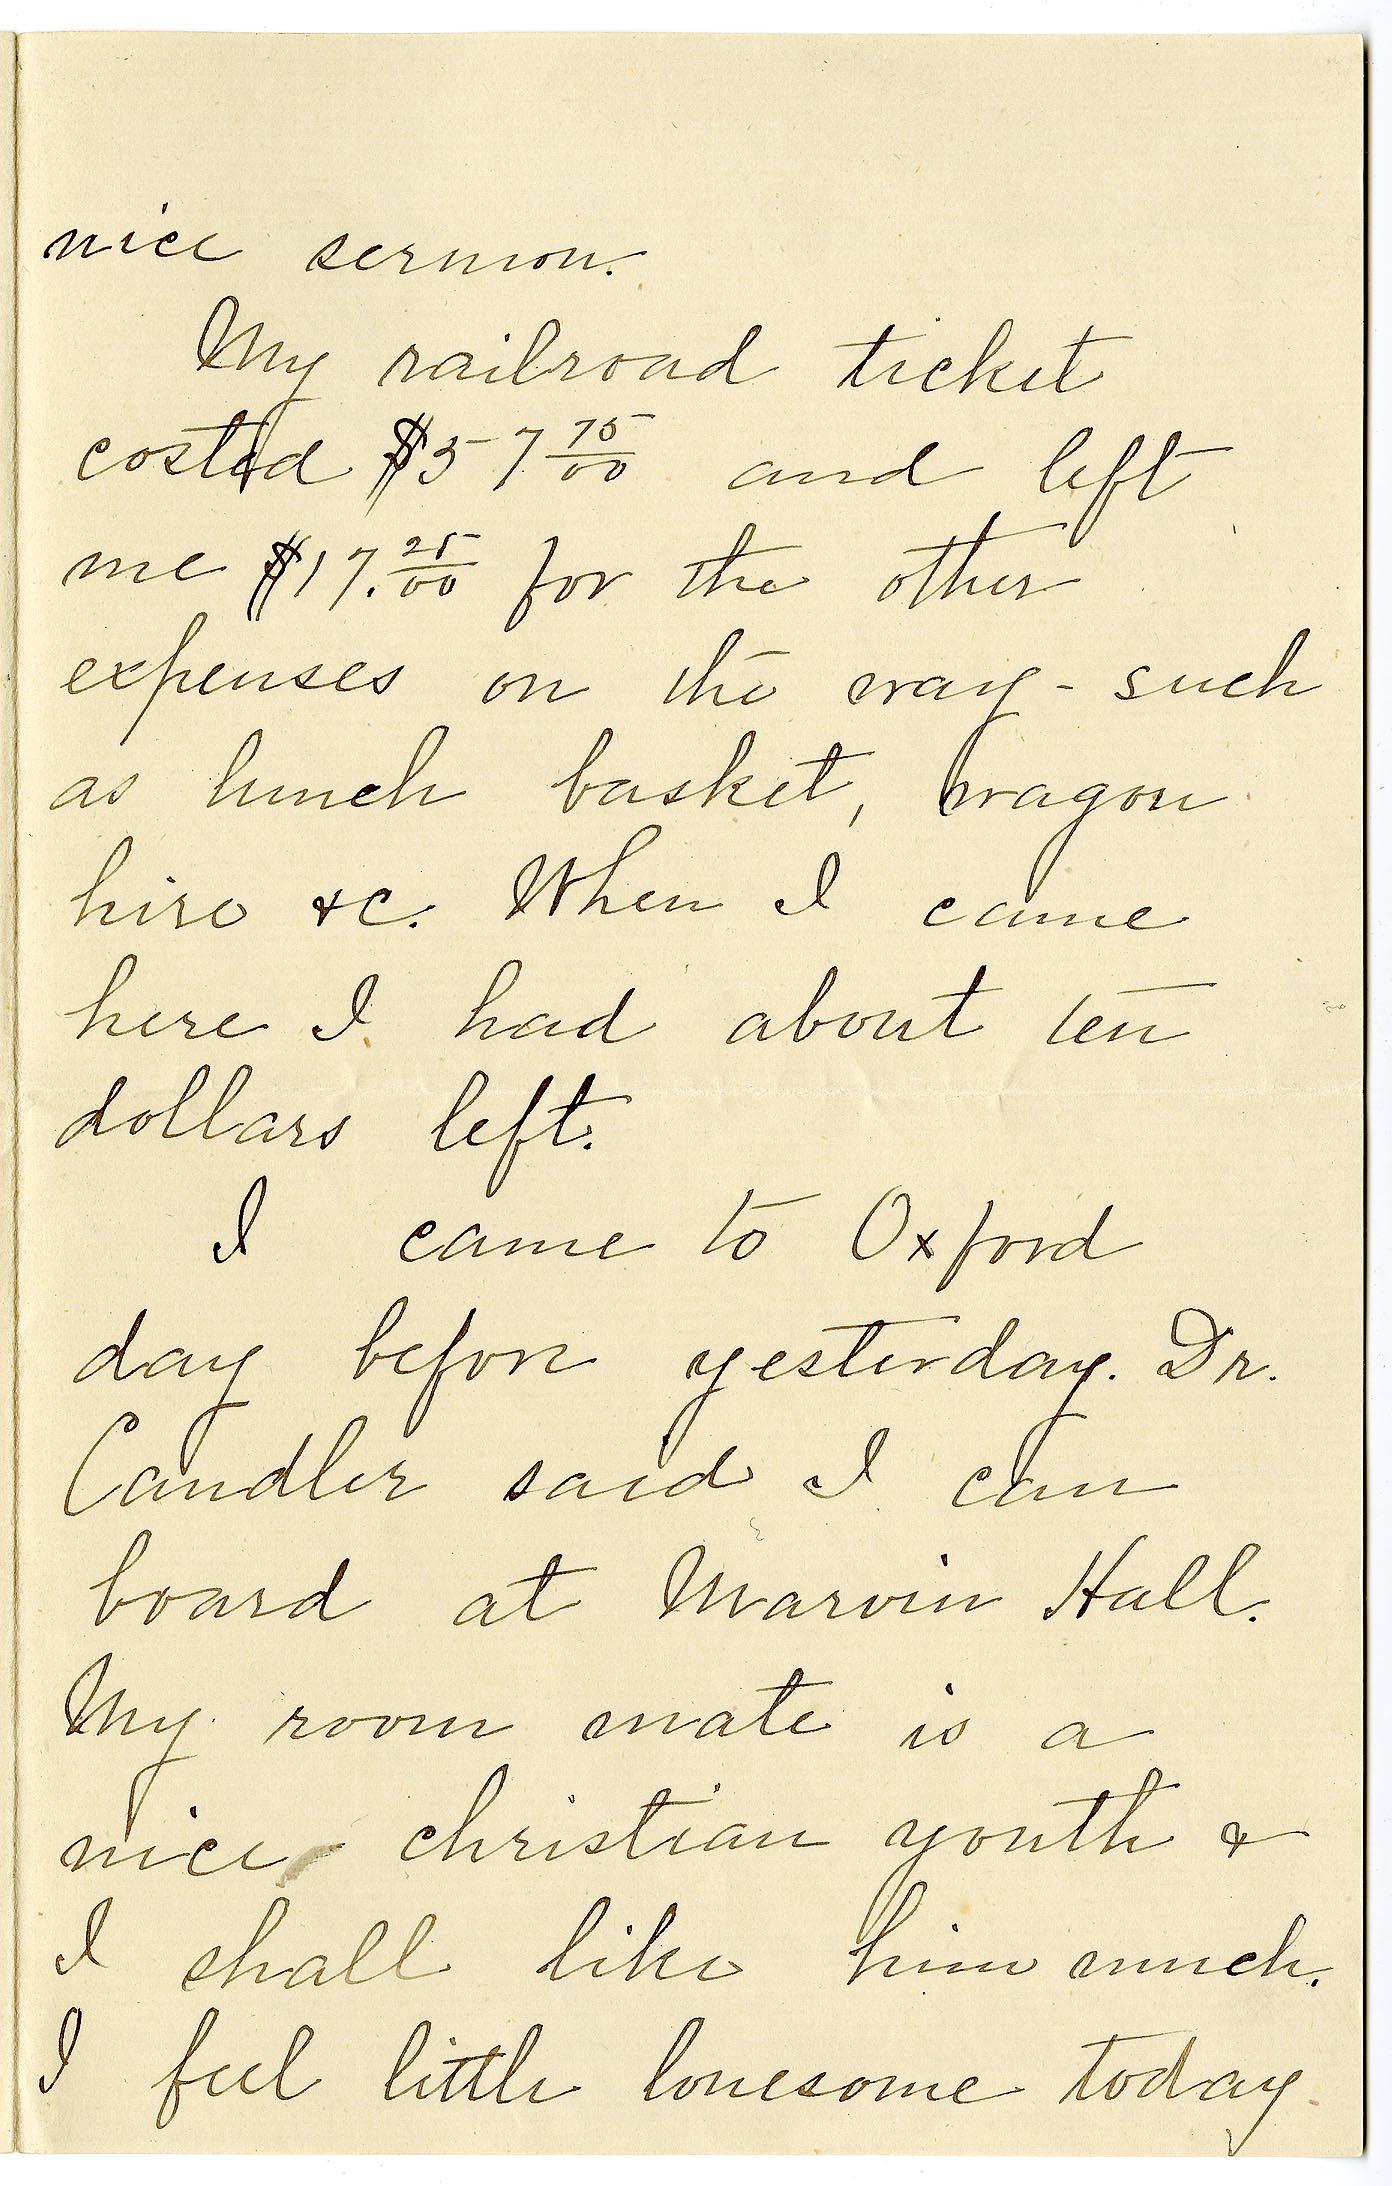 nice sermon.
My railroad ticket
costed $57 75/00 and left
me $17. 25/00 for the other
expenses on the way - such
as lunch basket, wagon
hire &c. When I came
here I had about ten
dollars left.
I came to Oxford
day before yesterday. Dr.
Candler said I can
board at Marvin Hall.
My room mate is a
nice christian youth &
I shall like him much.
I feel little lonesome today